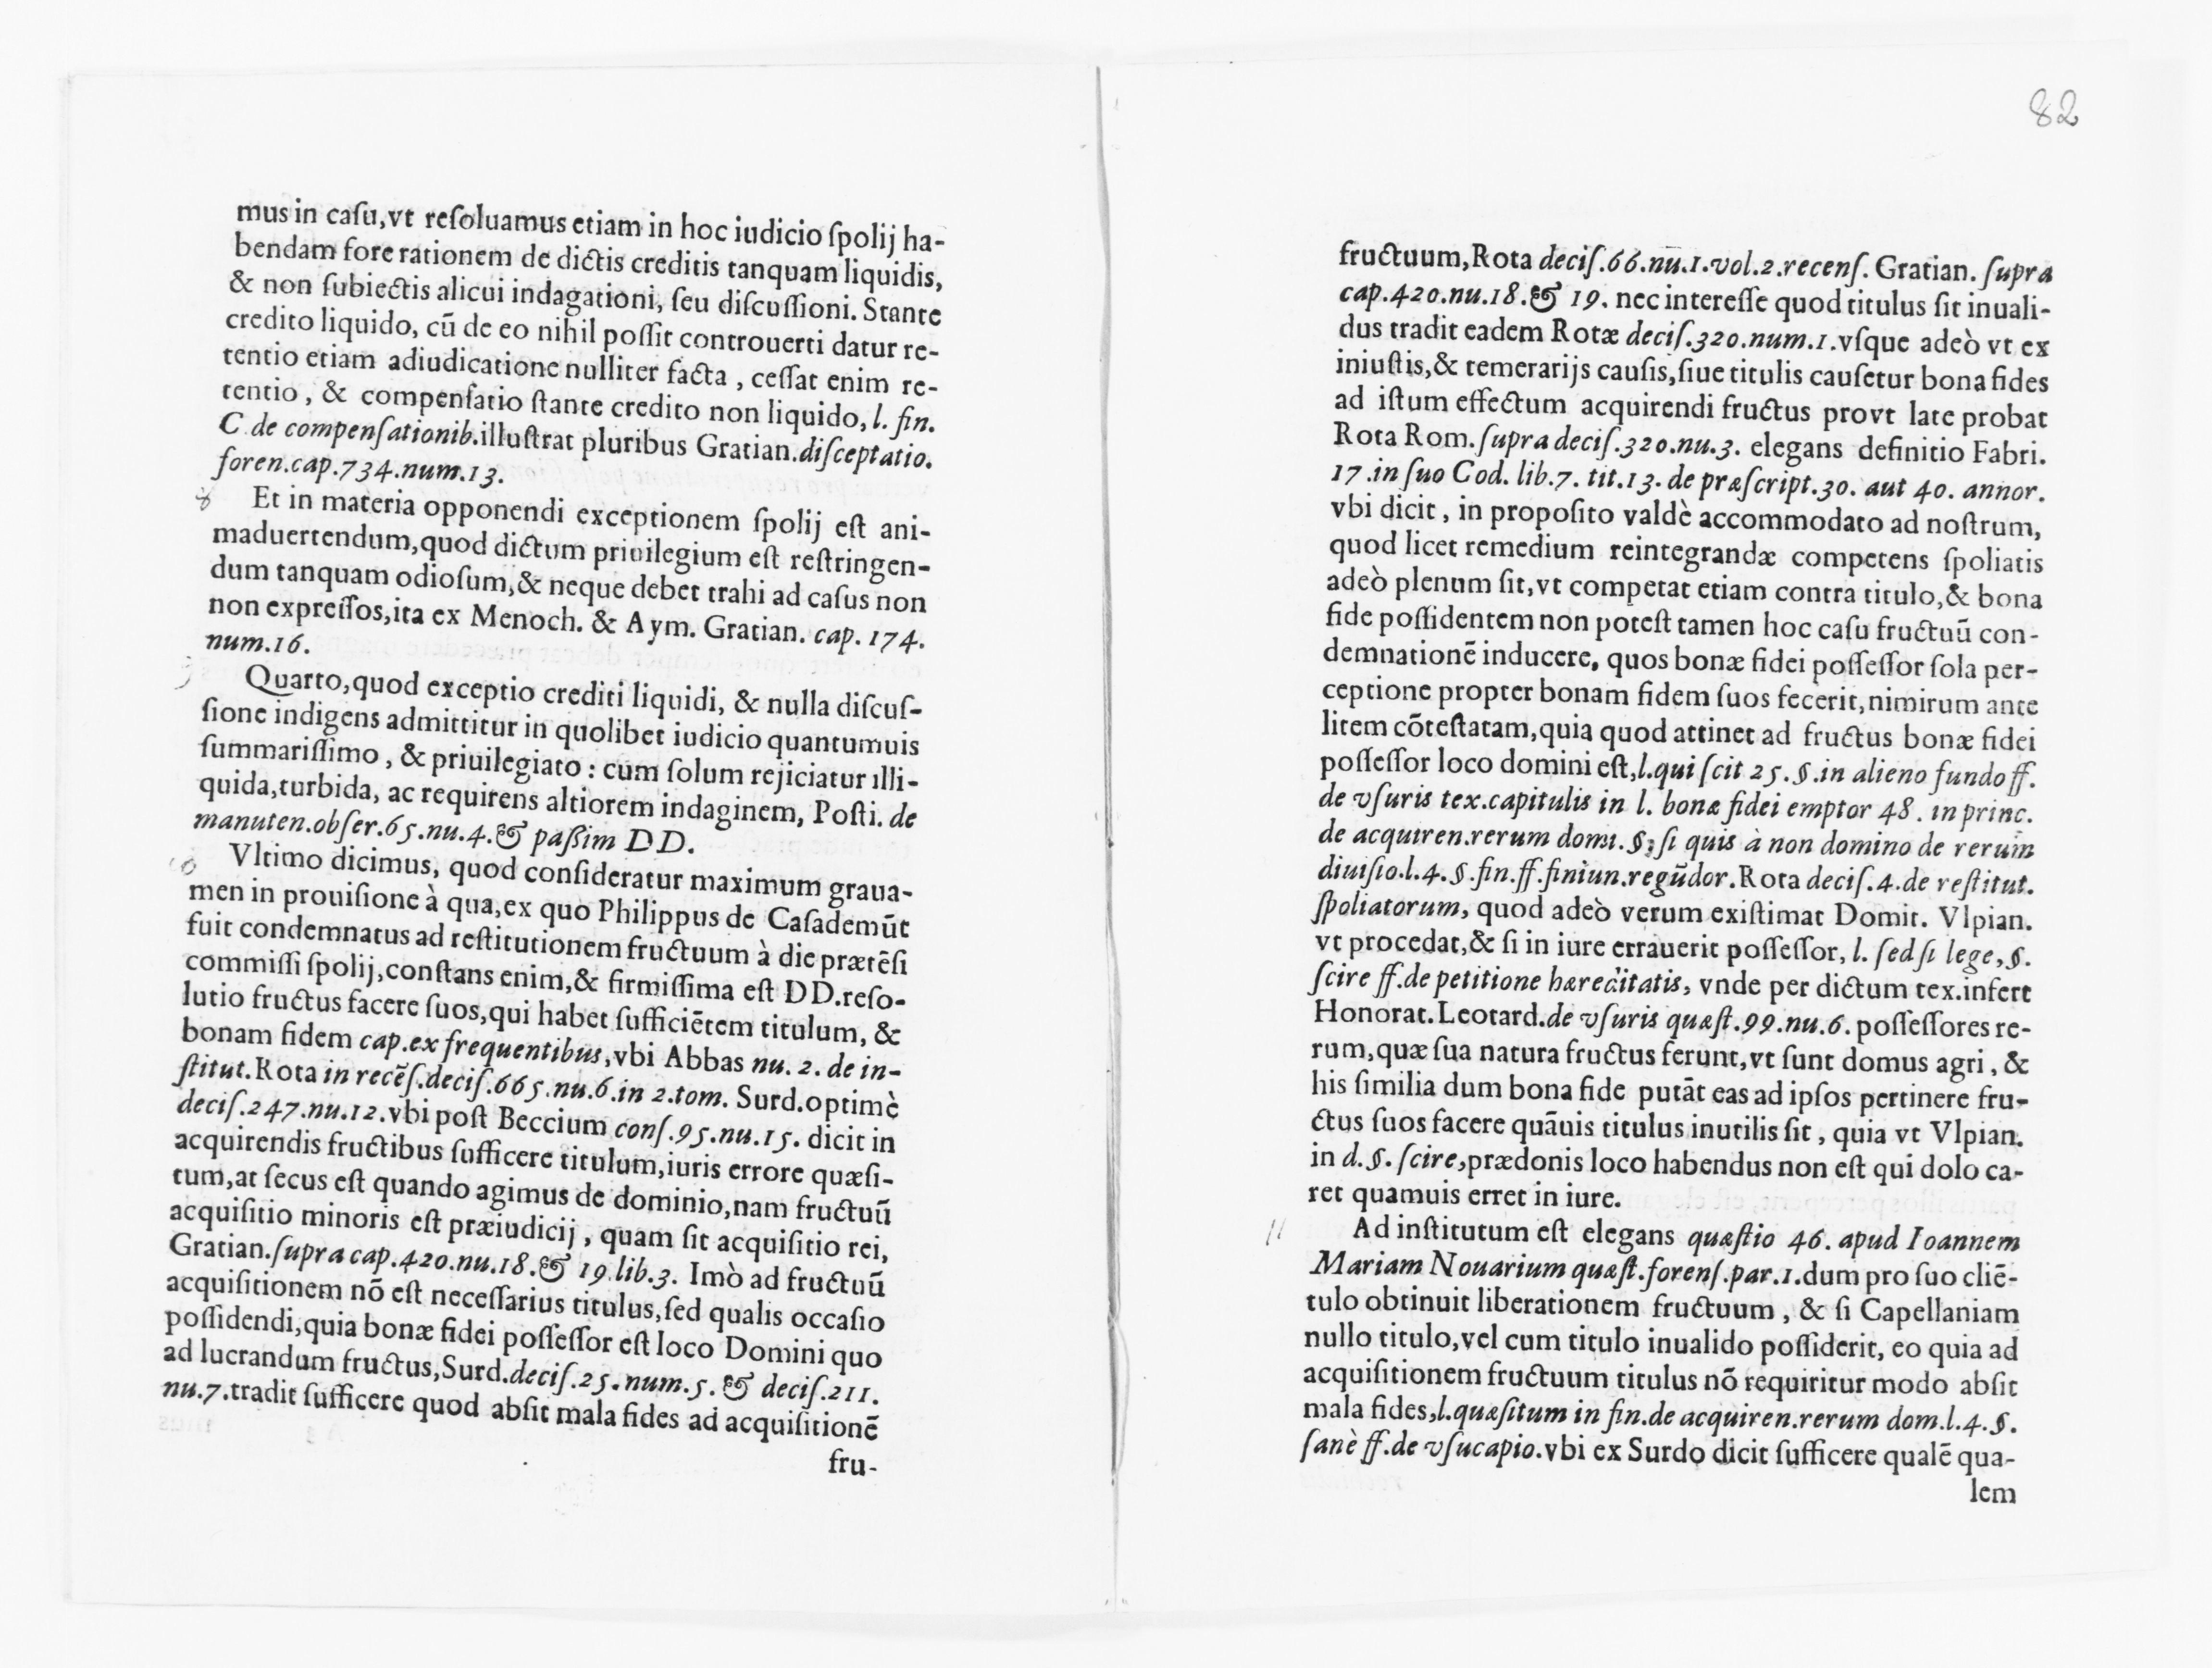 mus in caſu,vt reſoluamus etiam in hoc iudicio ſpolij ha-
bendam fore rationem de dictis creditis tanquam liquidis,
& non ſubiectis alicui indagationi, ſeu diſcuſſioni. Stante
credito liquido, cũ de eo nihil poſſit controuerti datur re-
tentio etiam adiudicatione nulliter facta , ceſſat enim re-
tentio , & compenſatio ſtante credito non liquido, l. fin.
C de compenſationib.illuſtrat pluribus Gratian.diſceptatio.
foren.cap.734.num.13.
8 Et in materia opponendi exceptionem ſpolij eſt ani-
maduertendum,quod dictum priuilegium eſt reſtringen-
dum tanquam odioſum,& neque debet trahi ad caſus non
non expreſſos,ita ex Menoch. & Aym. Gratian. cap. 174.
num.16.
9 Quarto,quod exceptio crediti liquidi, & nulla diſcuſ-
ſione indigens admittitur in quolibet iudicio quantumuis
ſummariſſimo , & priuilegiato : cum ſolum rejiciatur illi-
quida,turbida, ac requirens altiorem indaginem, Poſti. de
manuten.obſer.65.nu.4.& paßim DD.
10 Vltimo dicimus, quod conſideratur maximum graua-
men in prouiſione à qua,ex quo Philippus de Caſademũt
fuit condemnatus ad reſtitutionem fructuum à die prætẽſi
commiſſi ſpolij,conſtans enim,& firmiſſima eſt DD.reſo-
lutio fructus facere ſuos,qui habet ſufficiẽtem titulum, &
bonam fidem cap.ex frequentibus,vbi Abbas nu. 2. de in-
ſtitut.Rota in recẽſ.deciſ.665.nu.6.in 2.tom. Surd.optimè
deciſ.247.nu.12.vbi poſt Beccium conſ.95.nu.15. dicit in
acquirendis fructibus ſufficere titulum,iuris errore quæſi-
tum,at ſecus eſt quando agimus de dominio,nam fructuũ
acquiſitio minoris eſt præiudicij , quam ſit acquiſitio rei,
Gratian.ſupra cap.420.nu.18.& 19.lib.3. Imò ad fructuũ
acquiſitionem nõ eſt neceſſarius titulus,ſed qualis occaſio
poſſidendi,quia bonæ fidei poſſeſſor eſt loco Domini quo
ad lucrandum fructus,Surd.deciſ.25.num.5. & deciſ.211.
nu.7.tradit ſufficere quod abſit mala fides ad acquiſitionẽ
fru-
82
fructuum,Rota deciſ.66.nu.1.vol.2.recenſ. Gratian. ſupra
cap.420.nu.18.& 19. nec intereſſe quod titulus ſit inuali-
dus tradit eadem Rotæ deciſ.320.num.1.vſque adeò vt ex
iniuſtis,& temerarijs cauſis,ſiue titulis cauſetur bona fides
ad iſtum effectum acquirendi fructus provt late probat
Rota Rom.ſupra deciſ.320.nu.3. elegans definitio Fabri.
17.in ſuo Cod. lib.7. tit.13. de præſcript.30. aut 40. annor.
vbi dicit , in propoſito valdè accommodato ad noſtrum,
quod licet remedium reintegrandæ competens ſpoliatis
adeò plenum ſit,vt competat etiam contra titulo,& bona
fide poſſidentem non poteſt tamen hoc caſu fructuũ con-
demnationẽ inducere, quos bonæ fidei poſſeſſor ſola per-
ceptione propter bonam fidem ſuos fecerit,nimirum ante
litem cõteſtatam,quia quod attinet ad fructus bonæ fidei
poſſeſſor loco domini eſt,l.qui ſcit 25.§.in alieno fundo ff.
de vſuris tex.capitulis in l. bonæ fidei emptor 48. in princ.
de acquiren.rerum domi.§.ſi quis à non domino de rerum
diuiſio.l.4.§.fin.ff.finiun.regũdor.Rota deciſ.4.de reſtitut.
ſpoliatorum, quod adeò verum exiſtimat Domit. Vlpian.
vt procedat,& ſi in iure errauerit poſſeſſor, l. ſed ſi lege,§.
ſcire ff.de petitione hæreditatis, vnde per dictum tex.infert
Honorat.Leotard.de vſuris quæſt.99.nu.6. poſſeſſores re-
rum,quæ ſua natura fructus ferunt,vt ſunt domus agri , &
his ſimilia dum bona fide putãt eas ad ipſos pertinere fru-
ctus ſuos facere quãuis titulus inutilis ſit , quia vt Vlpian.
in d.§. ſcire,prædonis loco habendus non eſt qui dolo ca-
ret quamuis erret in iure.
11 Ad inſtitutum eſt elegans quæſtio 46. apud Ioannem
Mariam Nouarium quæſt.forenſ.par.1.dum pro ſuo cliẽ-
tulo obtinuit liberationem fructuum , & ſi Capellaniam
nullo titulo,vel cum titulo inualido poſſiderit, eo quia ad
acquiſitionem fructuum titulus nõ requiritur modo abſit
mala fides,l.quæſitum in fin.de acquiren.rerum dom.l.4.§.
ſanè ff.de vſucapio.vbi ex Surdo dicit ſufficere qualẽ qua-
lem